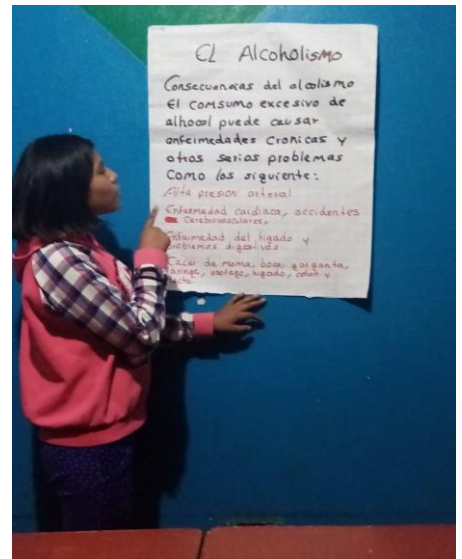 EL Alcoholismo
Consecuencias del alcolismo
El comsumo excesivo de
alhocol puede causar
enfermedades Cronicas y
otros serios problemas
Como los siguiente:
Alta presion arterial
Enfermedad cardiaca, accidentes
Cerebrovasculares,
Enfermedad del higado y
problemas digestivos
Cacer de mama, boca, garganta,
laringe, esofago, higado, colon y
recto.